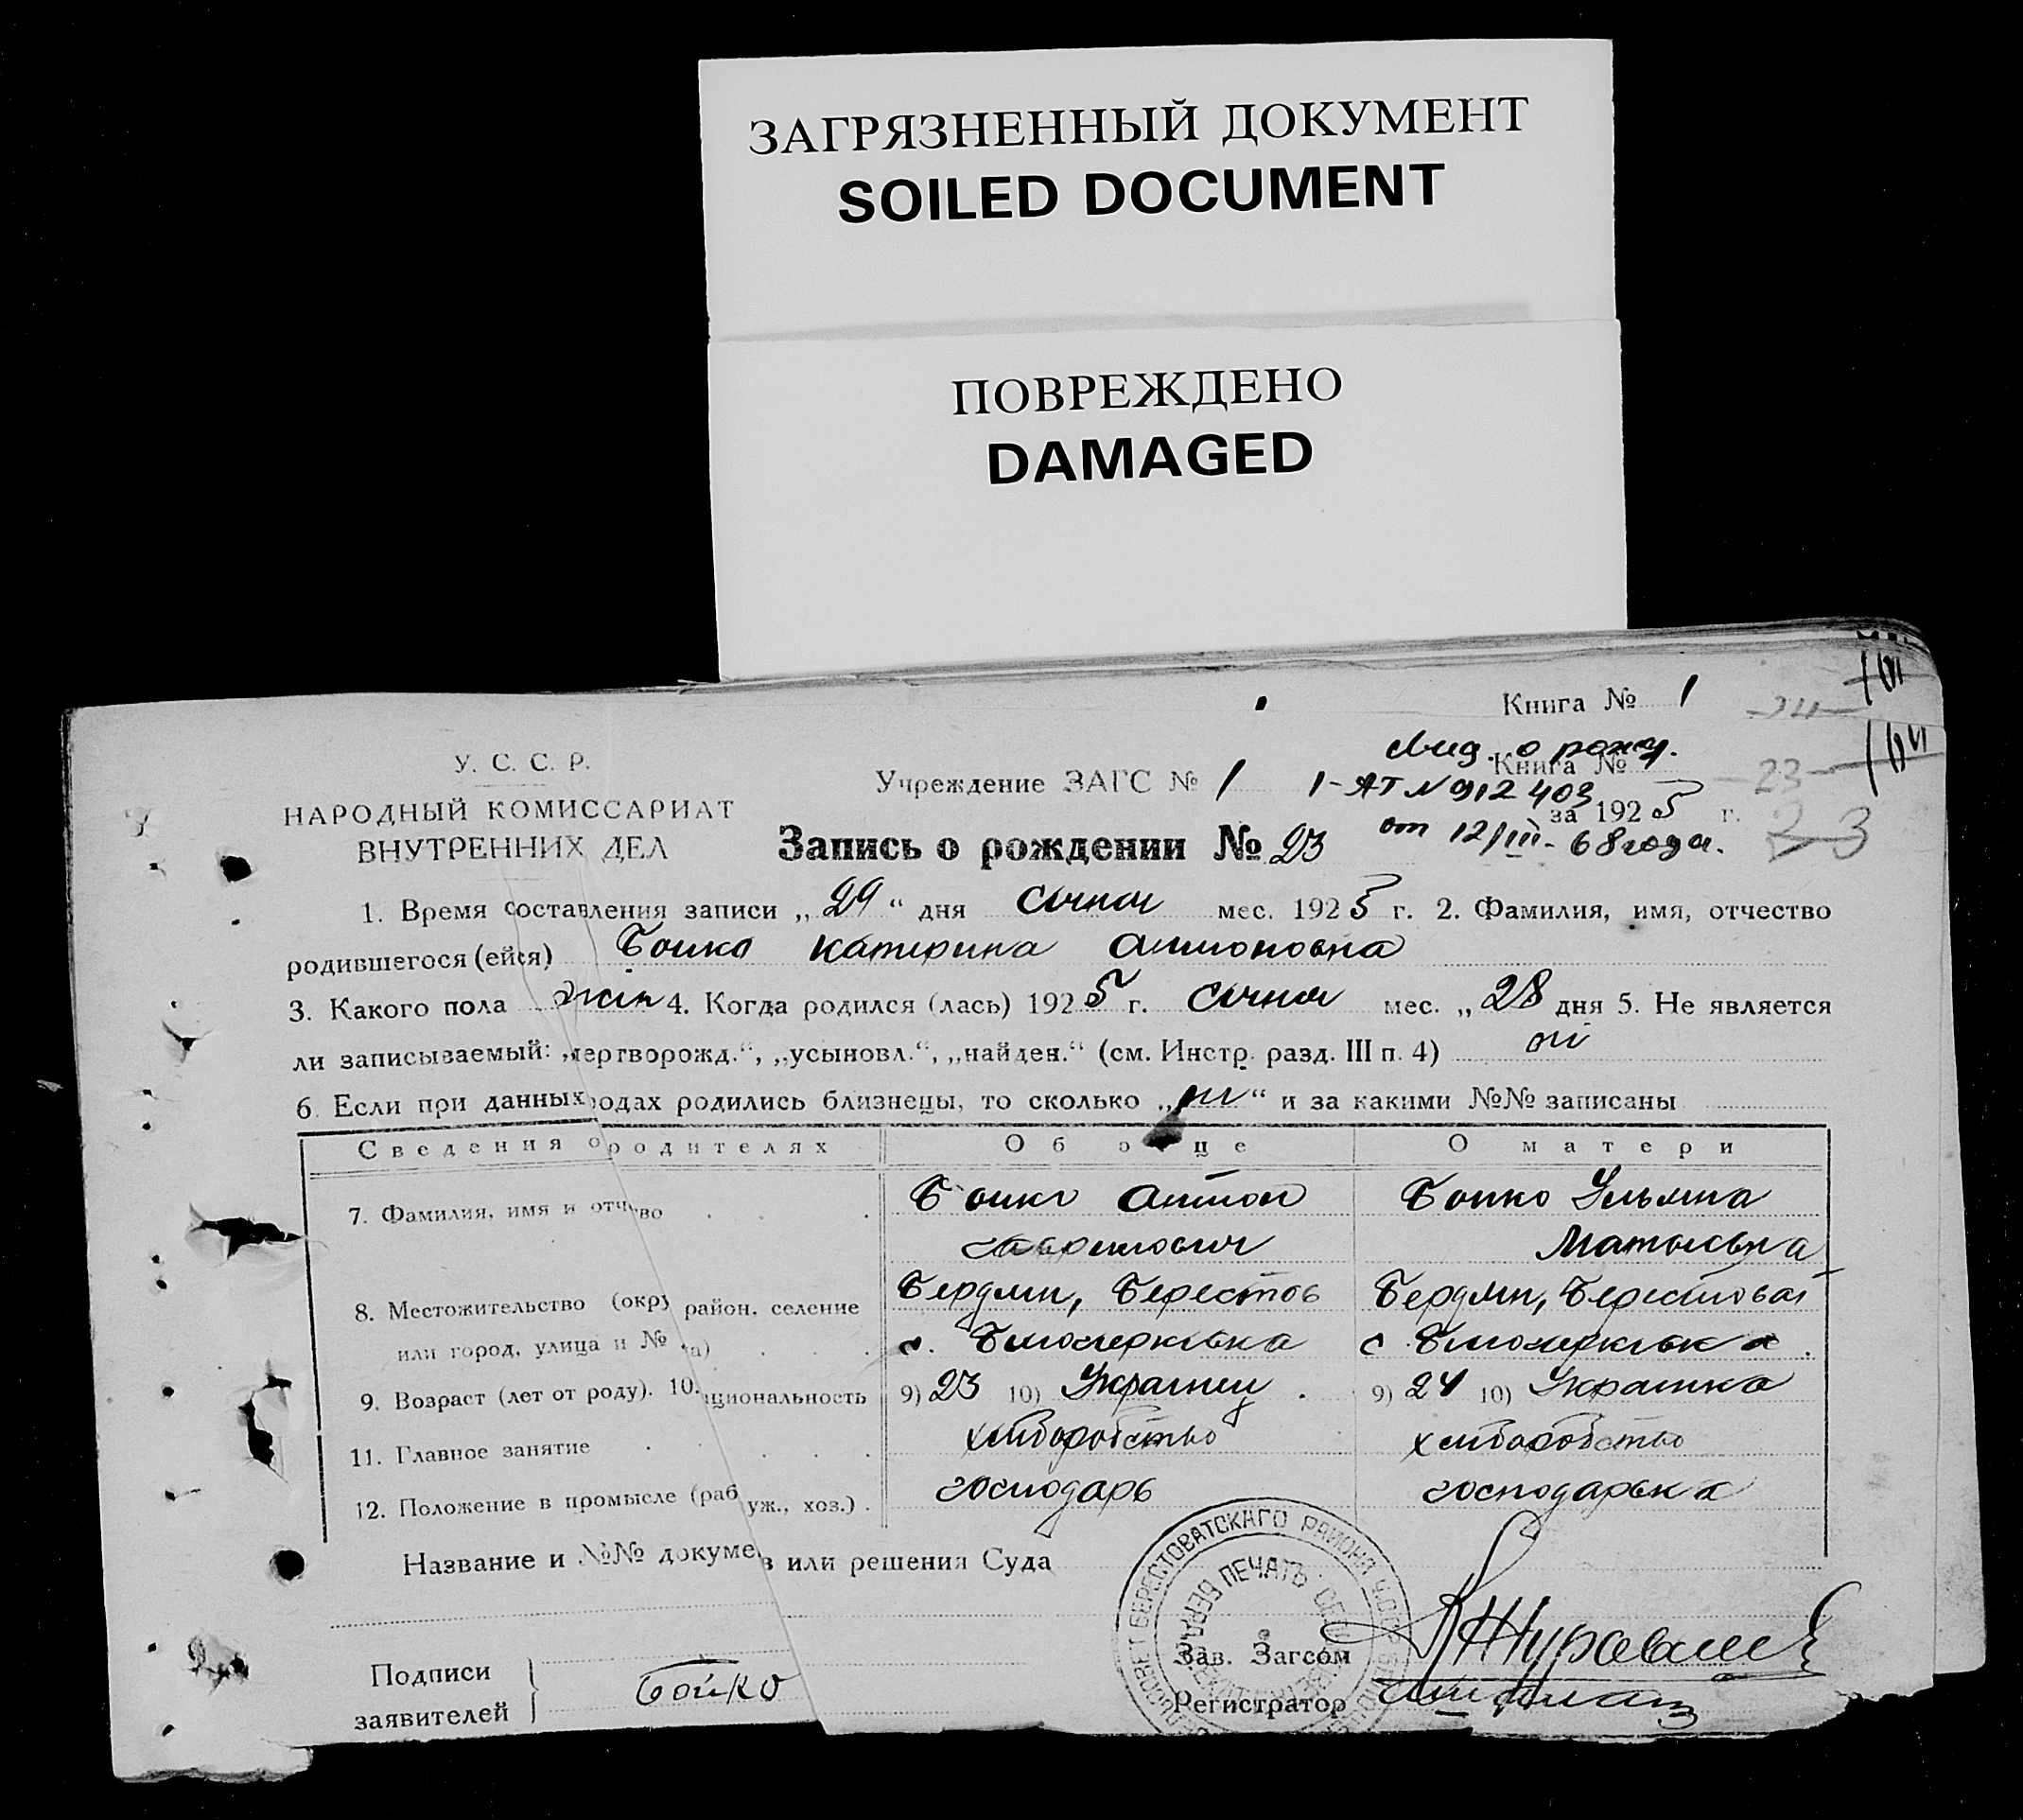 ЗАГРЯЗНЕННЫЙ ДОКУМЕНТ
SOILED DOCUMENT
ПОВРЕЖДЕНО
DAMAGED
Книга № 1
У. С. С. Р.
НАРОДНЫЙ КОМИССАРИАТ
ВНУТРЕННИХ ДЕЛ
Свид. о рожд.
Учреждение ЗАГС № 1 Книга №
1-АТ № 912403
за 1925 г. 23
Запись о рождении № 23 от 12/III-68 года. 23
1. Время составления записи „29“ дня січня мес. 1925 г. 2. Фамилия, имя, отчество
родившегося (ейся) Бойко Катерина Антоновна
3. Какого пола жін 4. Когда родился (лась) 1925 г. січня мес. „28 дня 5. Не является
ли записываемый: „мертворожд.“, „усыновл.“, „найден.“ (см. Инстр. разд. III п. 4) ні
6. Если при данных родах родились близнецы, то сколько „ні“ и за какими №№ записаны
Сведения о родителях Об отце О матери
7. Фамилия, имя и отч во Бойко Антон Бойко Ульяна
Гаврилович Матвієвна
8. Местожительство (окру район, селение Бердян, Берестов Бердян, Берестоват
или город, улица и № а) с. Білочерківка с. Білочерківка.
9. Возраст (лет от роду). 10. циональность 9) 23 10) Українец. 9) 24 10) Українка
11. Главное занятие хліборобство хліборобство
12. Положение в промысле (раб уж., хоз.). господарь господарька
Название и №№ докуме в или решения Суда
БЕРЕСТОВАТСКАГО РАЙОНА
ПЕЧАТЬ
Подписи
заявителей
Бойко
Зав. Загсом
Регистратор